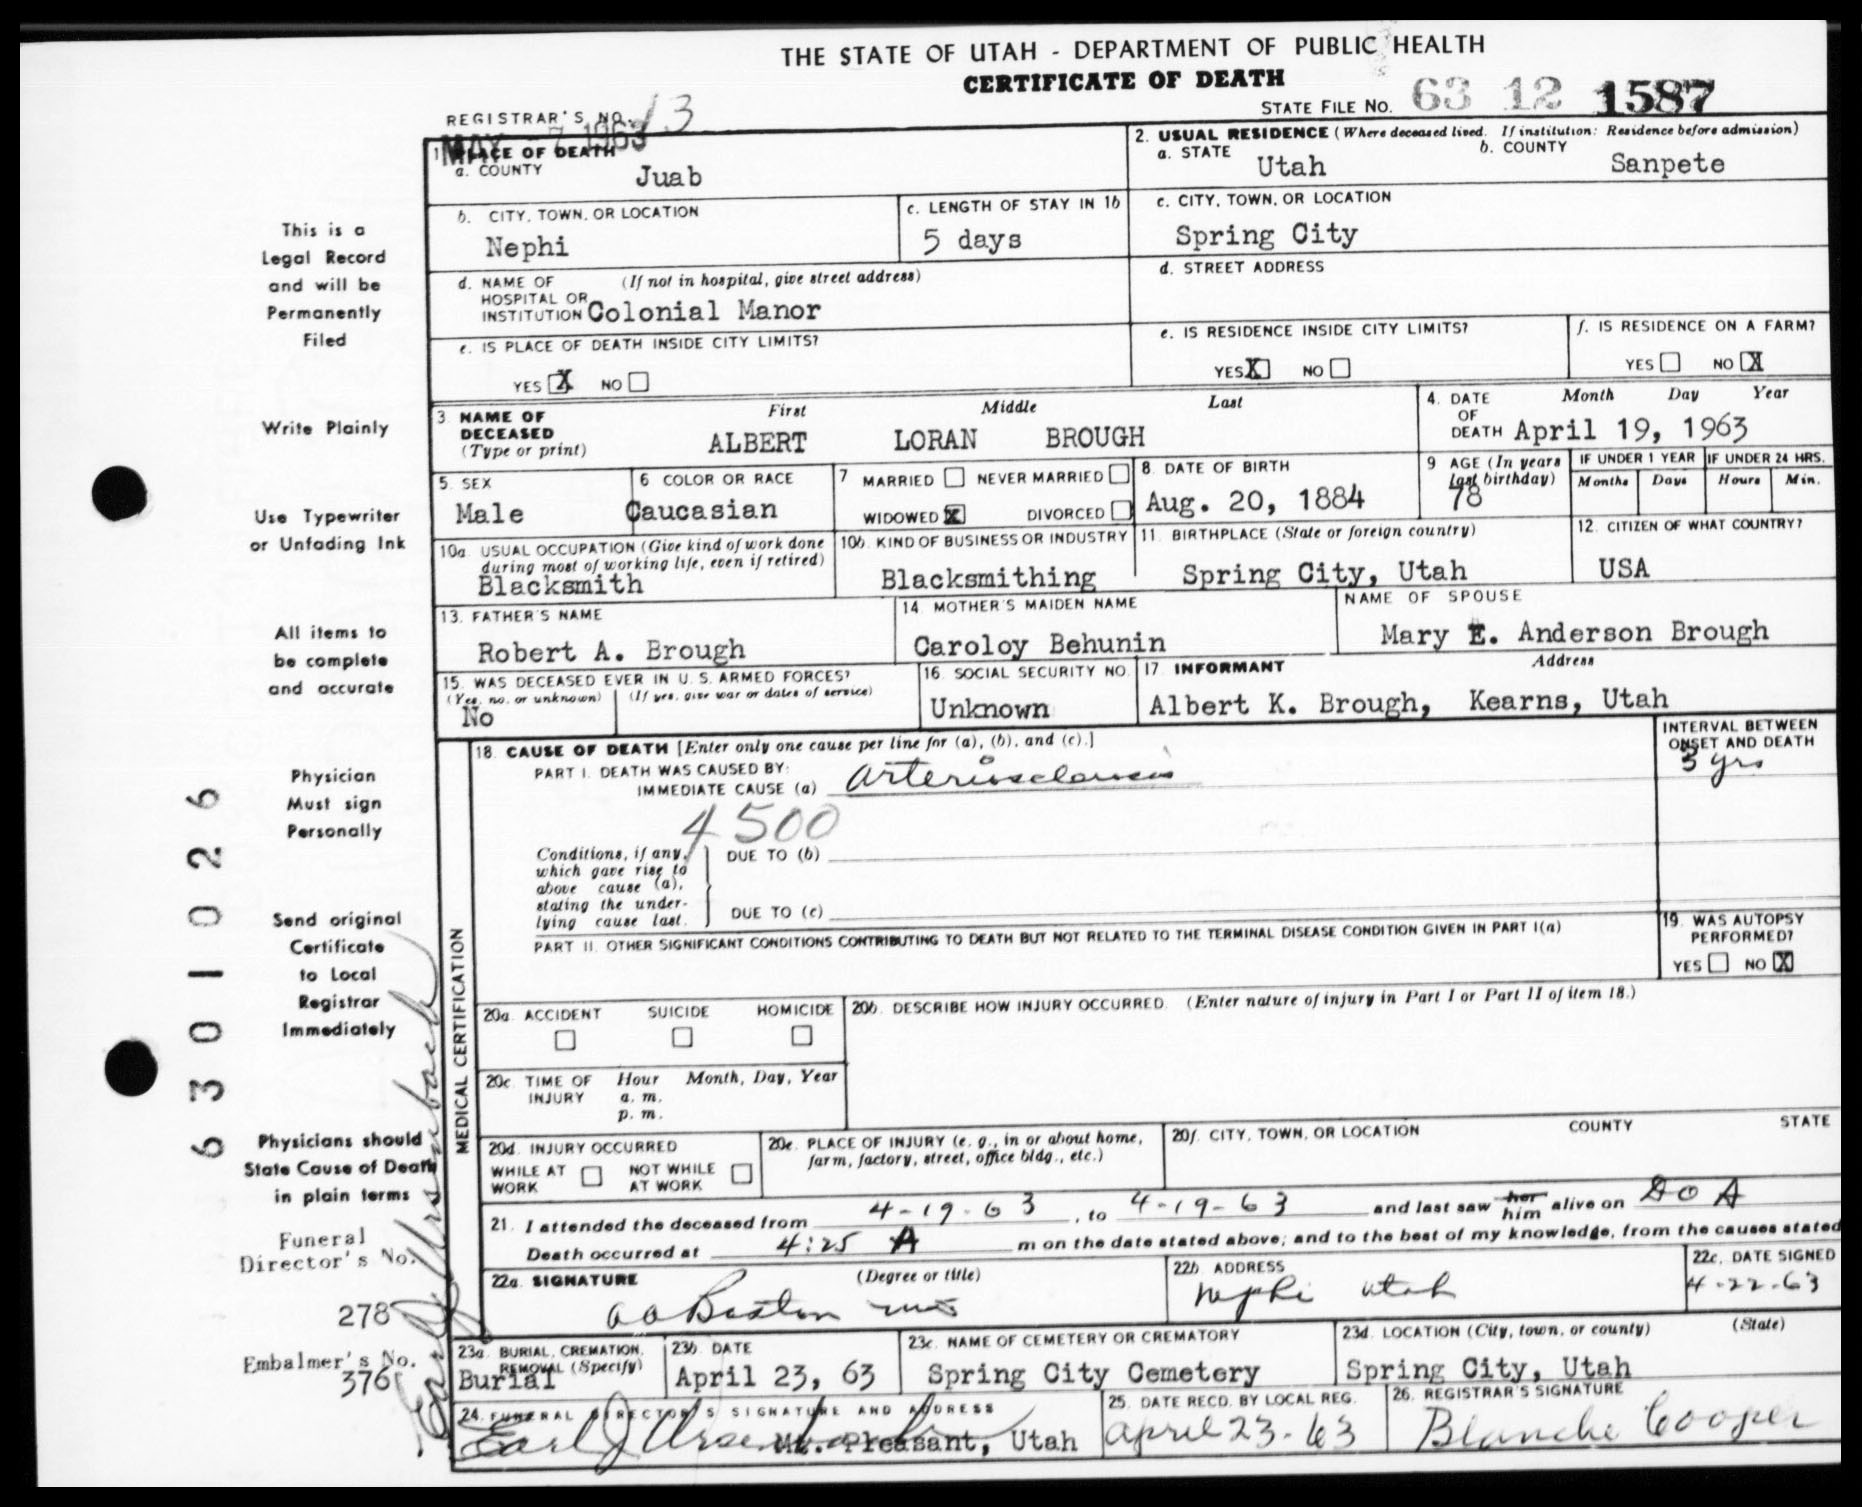 THE STATE OF UTAH - DEPARTMENT OF PUBLIC HEALTH
CERTIFICATE OF DEATH
STATE FILE NO. 63 12 1587
REGISTRAR'S NO. 13
MAY 7 1963
1. PLACE OF DEATH
a. COUNTY
Juab
2. USUAL RESIDENCE (Where deceased lived. If institution: Residence before admission)
a. STATE Utah b. COUNTY Sanpete
b. CITY, TOWN, OR LOCATION
Nephi
c. LENGTH OF STAY IN 1b
5 days
c. CITY, TOWN, OR LOCATION
Spring City
d. NAME OF HOSPITAL OR INSTITUTION (If not in hospital, give street address)
Colonial Manor
d. STREET ADDRESS
e. IS PLACE OF DEATH INSIDE CITY LIMITS?
YES X NO
e. IS RESIDENCE INSIDE CITY LIMITS?
YES X NO
f. IS RESIDENCE ON A FARM?
YES NO X
3. NAME OF DECEASED (Type or print)
First Middle Last
ALBERT LORAN BROUGH
4. DATE OF DEATH Month Day Year
April 19, 1963
5. SEX
Male
6 COLOR OR RACE
Caucasian
7 MARRIED NEVER MARRIED
WIDOWED X DIVORCED
8. DATE OF BIRTH
Aug. 20, 1884
9 AGE (In years last birthday)
78
IF UNDER 1 YEAR
Months Days
IF UNDER 24 HRS.
Hours Min.
10a. USUAL OCCUPATION (Give kind of work done during most of working life, even if retired)
Blacksmith
10b. KIND OF BUSINESS OR INDUSTRY
Blacksmithing
11. BIRTHPLACE (State or foreign country)
Spring City, Utah
12. CITIZEN OF WHAT COUNTRY?
USA
13. FATHER'S NAME
Robert A. Brough
14. MOTHER'S MAIDEN NAME
Caroloy Behunin
NAME OF SPOUSE
Mary E. Anderson Brough
15. WAS DECEASED EVER IN U.S. ARMED FORCES?
(Yes, no, or unknown) (If yes, give war or dates of service)
No
16. SOCIAL SECURITY NO.
Unknown
17. INFORMANT Address
Albert K. Brough, Kearns, Utah
MEDICAL CERTIFICATION
18. CAUSE OF DEATH [Enter only one cause per line for (a), (b), and (c).]
PART I. DEATH WAS CAUSED BY:
IMMEDIATE CAUSE (a) Arteriosclerosis
INTERVAL BETWEEN ONSET AND DEATH
3 yrs
4500
Conditions, if any, which gave rise to above cause (a), stating the underlying cause last.
DUE TO (b)
DUE TO (c)
PART II. OTHER SIGNIFICANT CONDITIONS CONTRIBUTING TO DEATH BUT NOT RELATED TO THE TERMINAL DISEASE CONDITION GIVEN IN PART I(a)
19. WAS AUTOPSY PERFORMED?
YES NO X
20a. ACCIDENT SUICIDE HOMICIDE
20b. DESCRIBE HOW INJURY OCCURRED. (Enter nature of injury in Part I or Part II of item 18.)
20c. TIME OF INJURY Hour Month, Day, Year
a. m.
p. m.
20d. INJURY OCCURRED
WHILE AT WORK NOT WHILE AT WORK
20e. PLACE OF INJURY (e. g., in or about home, farm, factory, street, office bldg., etc.)
20f. CITY, TOWN, OR LOCATION COUNTY STATE
21. I attended the deceased from 4-19-63, to 4-19-63 and last saw her him alive on DOA
Death occurred at 4:25 A m on the date stated above; and to the best of my knowledge, from the causes stated
22a. SIGNATURE (Degree or title)
22b. ADDRESS
Nephi Utah
22c. DATE SIGNED
4-22-63
23a. BURIAL, CREMATION, REMOVAL (Specify)
Burial
23b. DATE
April 23, 63
23c. NAME OF CEMETERY OR CREMATORY
Spring City Cemetery
23d. LOCATION (City, town, or county) (State)
Spring City, Utah
24. FUNERAL DIRECTOR'S SIGNATURE AND ADDRESS
Earl J Ursenbach
Mt. Pleasant, Utah
25. DATE RECD. BY LOCAL REG.
April 23-63
26. REGISTRAR'S SIGNATURE
Blanche Cooper
This is a
Legal Record
and will be
Permanently
Filed
Write Plainly
Use Typewriter
or Unfading Ink
All items to
be complete
and accurate
Physician
Must sign
Personally
Send original
Certificate
to Local
Registrar
Immediately
Physicians should
State Cause of Death
in plain terms
Funeral
Director's No.
278
Embalmer's No.
376
Earl J Ursenbach
6301026